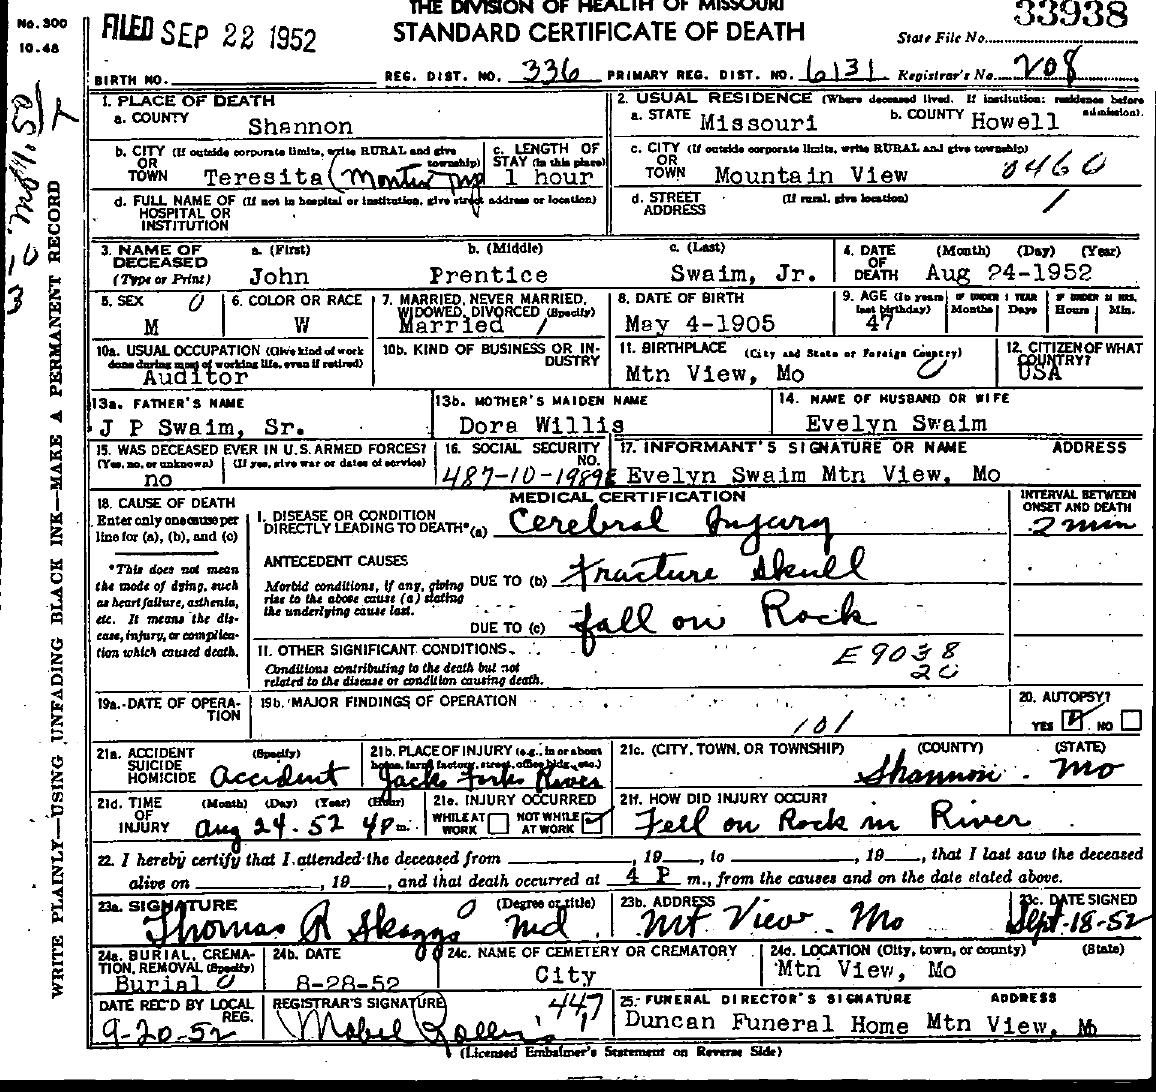 THE DIVISION OF HEALTH OF MISSOURI
STANDARD CERTIFICATE OF DEATH
No. 300
10.48
FILED SEP 22 1952
33938
State File No.
BIRTH NO. REG. DIST. NO. 336 PRIMARY REG. DIST. NO. 6131 Registrar's No. 208
1. PLACE OF DEATH
a. COUNTY Shannon
2. USUAL RESIDENCE (Where deceased lived. If institution: residence before admission).
a. STATE Missouri b. COUNTY Howell
b. CITY (If outside corporate limits, write RURAL and give township)
OR
TOWN Teresita (Montier
c. LENGTH OF
STAY (in this place)
1 hour
c. CITY (If outside corporate limits, write RURAL and give township)
OR
TOWN Mountain View 0460
d. FULL NAME OF (If not in hospital or institution, give street address or location)
HOSPITAL OR
INSTITUTION
d. STREET (If rural, give location)
ADDRESS 1
3. NAME OF DECEASED
(Type or Print)
a. (First) b. (Middle) c. (Last)
John Prentice Swaim, Jr.
4. DATE OF DEATH (Month) (Day) (Year)
Aug 24-1952
5. SEX 0
M
6. COLOR OR RACE
W
7. MARRIED, NEVER MARRIED,
WIDOWED, DIVORCED (Specify)
Married 1
8. DATE OF BIRTH
May 4-1905
9. AGE (In years last birthday) IF UNDER 1 YEAR Months Days IF UNDER 24 HRS. Hours Min.
47
10a. USUAL OCCUPATION (Give kind of work
done during most of working life, even if retired)
Auditor
10b. KIND OF BUSINESS OR INDUSTRY
11. BIRTHPLACE (City and State or Foreign Country)
Mtn View, Mo 0
12. CITIZEN OF WHAT
COUNTRY?
USA
13a. FATHER'S NAME
J P Swaim, Sr.
13b. MOTHER'S MAIDEN NAME
Dora Willis
14. NAME OF HUSBAND OR WIFE
Evelyn Swaim
15. WAS DECEASED EVER IN U.S. ARMED FORCES?
(Yes, no, or unknown) (If yes, give war or dates of service)
no
16. SOCIAL SECURITY
NO.
487-10-1989
17. INFORMANT'S SIGNATURE OR NAME ADDRESS
Evelyn Swaim Mtn View, Mo
18. CAUSE OF DEATH
Enter only one cause per
line for (a), (b), and (c)
*This does not mean
the mode of dying, such
as heart failure, asthenia,
etc. It means the dis-
ease, injury, or complica-
tion which caused death.
MEDICAL CERTIFICATION
I. DISEASE OR CONDITION
DIRECTLY LEADING TO DEATH*(a) Cerebral Injury
INTERVAL BETWEEN
ONSET AND DEATH
2 min
ANTECEDENT CAUSES
Morbid conditions, if any, giving
rise to the above cause (a) stating
the underlying cause last.
DUE TO (b) Fracture Skull
DUE TO (c) fall on Rock
II. OTHER SIGNIFICANT CONDITIONS
Conditions contributing to the death but not
related to the disease or condition causing death.
E9038
20
19a. DATE OF OPERA-
TION
19b. MAJOR FINDINGS OF OPERATION
101
20. AUTOPSY?
YES NO
21a. ACCIDENT (Specify)
SUICIDE
HOMICIDE Accident
21b. PLACE OF INJURY (e.g., in or about
home, farm, factory, street, office bldg., etc.)
Jacks Forks River
21c. (CITY, TOWN, OR TOWNSHIP) (COUNTY) (STATE)
Shannon Mo
21d. TIME (Month) (Day) (Year) (Hour)
OF
INJURY Aug 24-52 4 P m.
21e. INJURY OCCURRED
WHILE AT WORK NOT WHILE AT WORK
21f. HOW DID INJURY OCCUR?
Fell on Rock in River
22. I hereby certify that I attended the deceased from , 19 , to , 19 , that I last saw the deceased
alive on , 19 , and that death occurred at 4 P m., from the causes and on the date stated above.
23a. SIGNATURE (Degree or title)
Thomas R Skaggs MD
23b. ADDRESS
Mt View, Mo
23c. DATE SIGNED
Sept-18-52
24a. BURIAL, CREMA-
TION, REMOVAL (Specify)
Burial 0
24b. DATE
8-28-52
24c. NAME OF CEMETERY OR CREMATORY
City
24d. LOCATION (City, town, or county) (State)
Mtn View, Mo
DATE REC'D BY LOCAL
REG.
9-20-52
REGISTRAR'S SIGNATURE 447
Mabel
25. FUNERAL DIRECTOR'S SIGNATURE ADDRESS
Duncan Funeral Home Mtn View, Mo
(Licensed Embalmer's Statement on Reverse Side)
WRITE PLAINLY—USING UNFADING BLACK INK—MAKE A PERMANENT RECORD